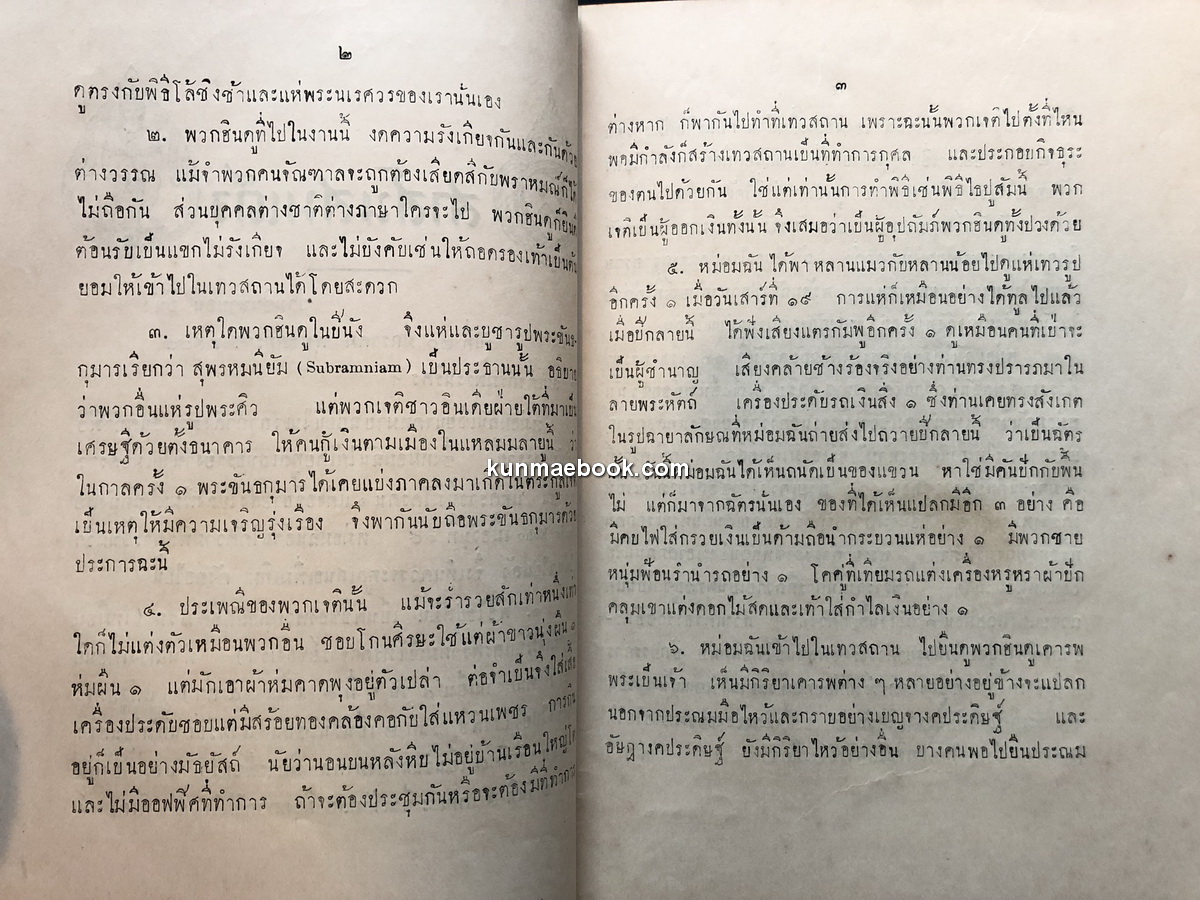 ๒
ดูตรงกับพิธีโล้ชิงช้าและแห่พระนเรศวรของเรานั่นเอง
๒. พวกฮินดูที่ไปในงานนี้ งดความรังเกียจกันและกันด้วย
ต่างวรรณ แม้จำพวกคนจัณฑาลจะถูกต้องเสียดสีกับพราหมณ์ก็ได้
ไม่ถือกัน ส่วนบุคคลต่างชาติต่างภาษาใครจะไป พวกฮินดูก็ยินดี
ต้อนรับเป็นแขกไม่รังเกียจ และไม่บังคับเช่นให้ถอดรองเท้าเป็นต้น
ยอมให้เข้าไปในเทวสถานได้โดยสะดวก
๓. เหตุใดพวกฮินดูในปีนัง จึงแห่และบูชารูปพระขันธ-
กุมารเรียกว่า สุพรหมนิยัม (Subramniam) เป็นประธานนั้น อธิบาย
ว่าพวกอื่นแห่รูปพระศิว แต่พวกเจติชาวอินเดียฝ่ายใต้ที่มาเป็น
เศรษฐีด้วยตั้งธนาคาร ให้คนกู้เงินตามเมืองในแหลมมลายูนี้ ว่า
ในกาลครั้ง ๑ พระขันธกุมารได้เคยแบ่งภาคลงมาเกิดในตระกูลเจติ
เป็นเหตุให้มีความเจริญรุ่งเรือง จึงพากันนับถือพระขันธกุมารด้วย
ประการฉะนี้
๔. ประเพณีของพวกเจตินั้น แม้จะร่ำรวยสักเท่าหนึ่งเท่า
ใดก็ไม่แต่งตัวเหมือนพวกอื่น ชอบโกนศีรษะใช้แต่ผ้าขาวนุ่งผืน ๑
ห่มผืน ๑ แต่มักเอาผ้าห่มคาดพุงอยู่ตัวเปล่า ต่อจำเป็นจึงใส่เสื้อ
เครื่องประดับชอบแต่มีสร้อยทองคล้องคอกับใส่แหวนเพชร การกิน
อยู่ก็เป็นอย่างมัธยัสถ์ นัยว่านอนบนหลังหีบไม่อยู่บ้านเรือนใหญ่โต
และไม่มีออฟฟิศที่ทำการ ถ้าจะต้องประชุมกันหรือจะต้องมีที่ทำการ
๓
ต่างหาก ก็พากันไปทำที่เทวสถาน เพราะฉะนั้นพวกเจติไปตั้งที่ไหน
พอมีกำลังก็สร้างเทวสถานเป็นที่ทำการกุศล และประกอบกิจธุระ
ของตนไปด้วยกัน ใช่แต่เท่านั้นการทำพิธีเช่นพิธีไธปูสัมนี้ พวก
เจติเป็นผู้ออกเงินทั้งนั้น จึงเสมอว่าเป็นผู้อุปถัมภ์พวกฮินดูทั้งปวงด้วย
๕. หม่อมฉัน ได้พา หลานแมวกับหลานน้อยไปดูแห่เทวรูป
อีกครั้ง ๑ เมื่อวันเสาร์ที่ ๑๙ การแห่ก็เหมือนอย่างได้ทูลไปแล้ว
เมื่อปีกลายนี้ ได้ฟังเสียงแตรกัมพูอีกครั้ง ๑ ดูเหมือนคนที่เป่าจะ
เป็นผู้ชำนาญ เสียงคล้ายช้างร้องจริงอย่างท่านทรงปรารภมาใน
ลายพระหัตถ์ เครื่องประดับรถเงินสิ่ง ๑ ซึ่งท่านเคยทรงสังเกต
ในรูปฉายาลักษณที่หม่อมฉันถ่ายส่งไปถวายปีกลายนี้ ว่าเป็นฉัตร
kunmaebook.com
นั้น วันนี้หม่อมฉันได้เห็นถนัดเป็นของแขวน หาใช่มีคันปักกับพื้น
ไม่ แต่ก็มาจากฉัตรนั้นเอง ของที่ได้เห็นแปลกมีอีก ๓ อย่าง คือ
มีคบไฟใส่กรวยเงินเป็นด้ามถือนำกระบวนแห่อย่าง ๑ มีพวกชาย
หนุ่มฟ้อนรำนำรถอย่าง ๑ โคคู่ที่เทียมรถแต่งเครื่องหรูหราผ้าปัก
คลุมเขาแต่งดอกไม้สดและเท้าใส่กำไลเงินอย่าง ๑
๖. หม่อมฉันเข้าไปในเทวสถาน ไปยืนดูพวกฮินดูเคารพ
พระเป็นเจ้า เห็นมีกิริยาเคารพต่าง ๆ หลายอย่างอยู่ข้างจะแปลก
นอกจากประณมมือไหว้และกราบอย่างเบญจางคประดิษฐ์ และ
อัษฎางคประดิษฐ์ ยังมีกิริยาไหว้อย่างอื่น บางคนพอไปยืนประณม